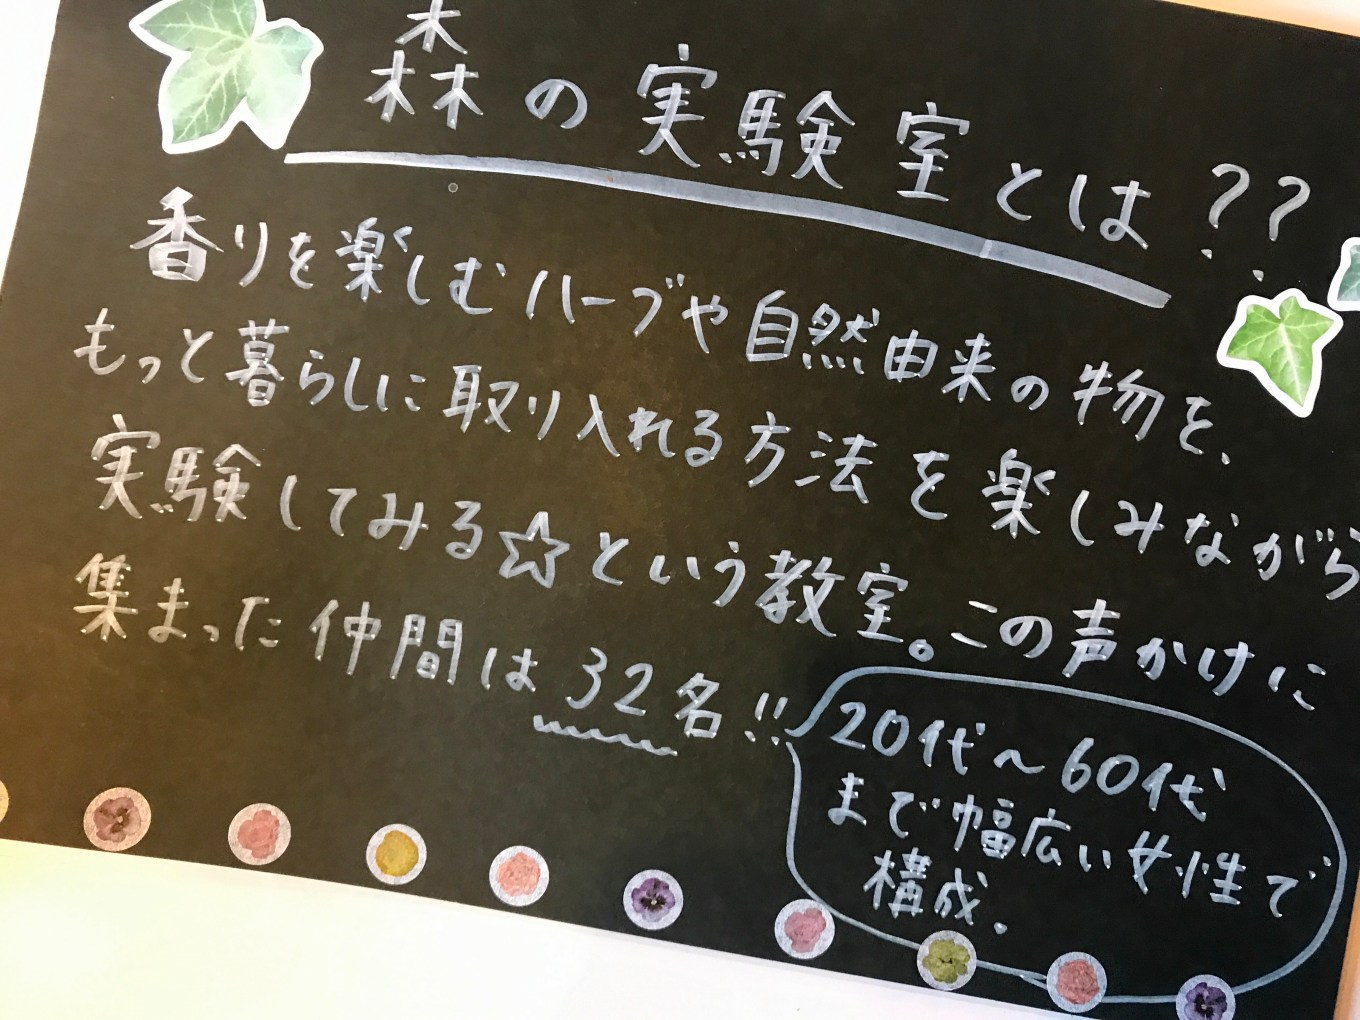 森の実験室とは??
香りを楽しむハーブや自然由来の物を、
もっと暮らしに取り入れる方法を楽しみながら
実験してみる☆という教室。この声かけに
集まった仲間は32名!!
20代〜60代
まで幅広い女性で
構成.